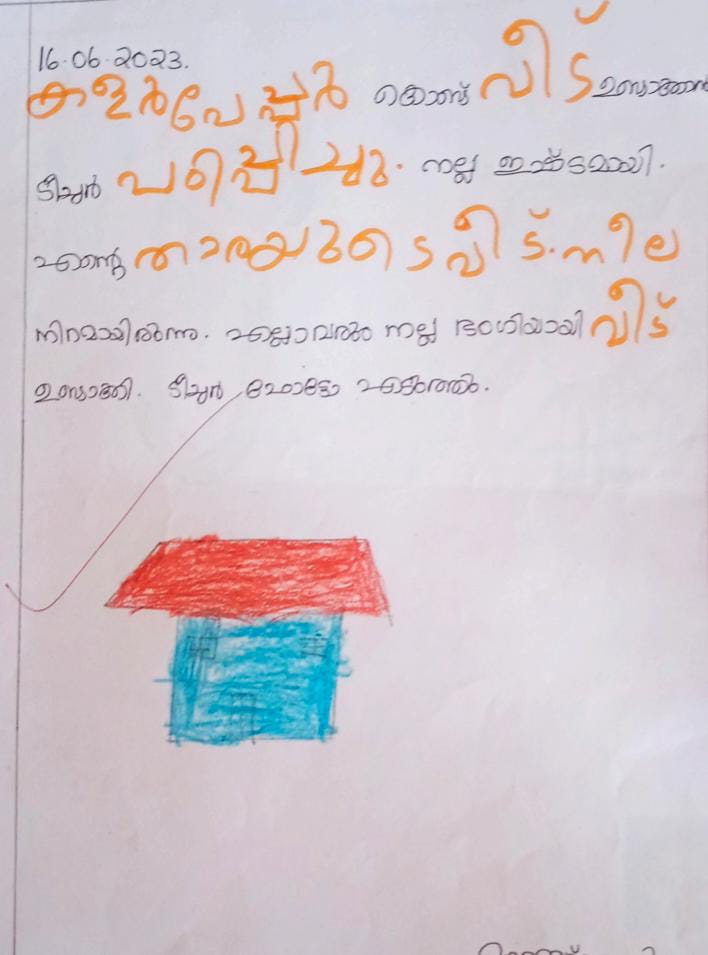 16.06.2023.
കളർപേപ്പർ കൊണ്ട് വീട് ഉണ്ടാക്കാൻ
ടീച്ചർ പഠിപ്പിച്ചു. നല്ല ഇഷ്ടമായി.
എന്റെ താരയുടെ വീട്. നീല
നിറമായിരുന്നു. എല്ലാവരും നല്ല ഭംഗിയായി വീട്
ഉണ്ടാക്കി. ടീച്ചർ ഫോട്ടോ എടുത്തു.